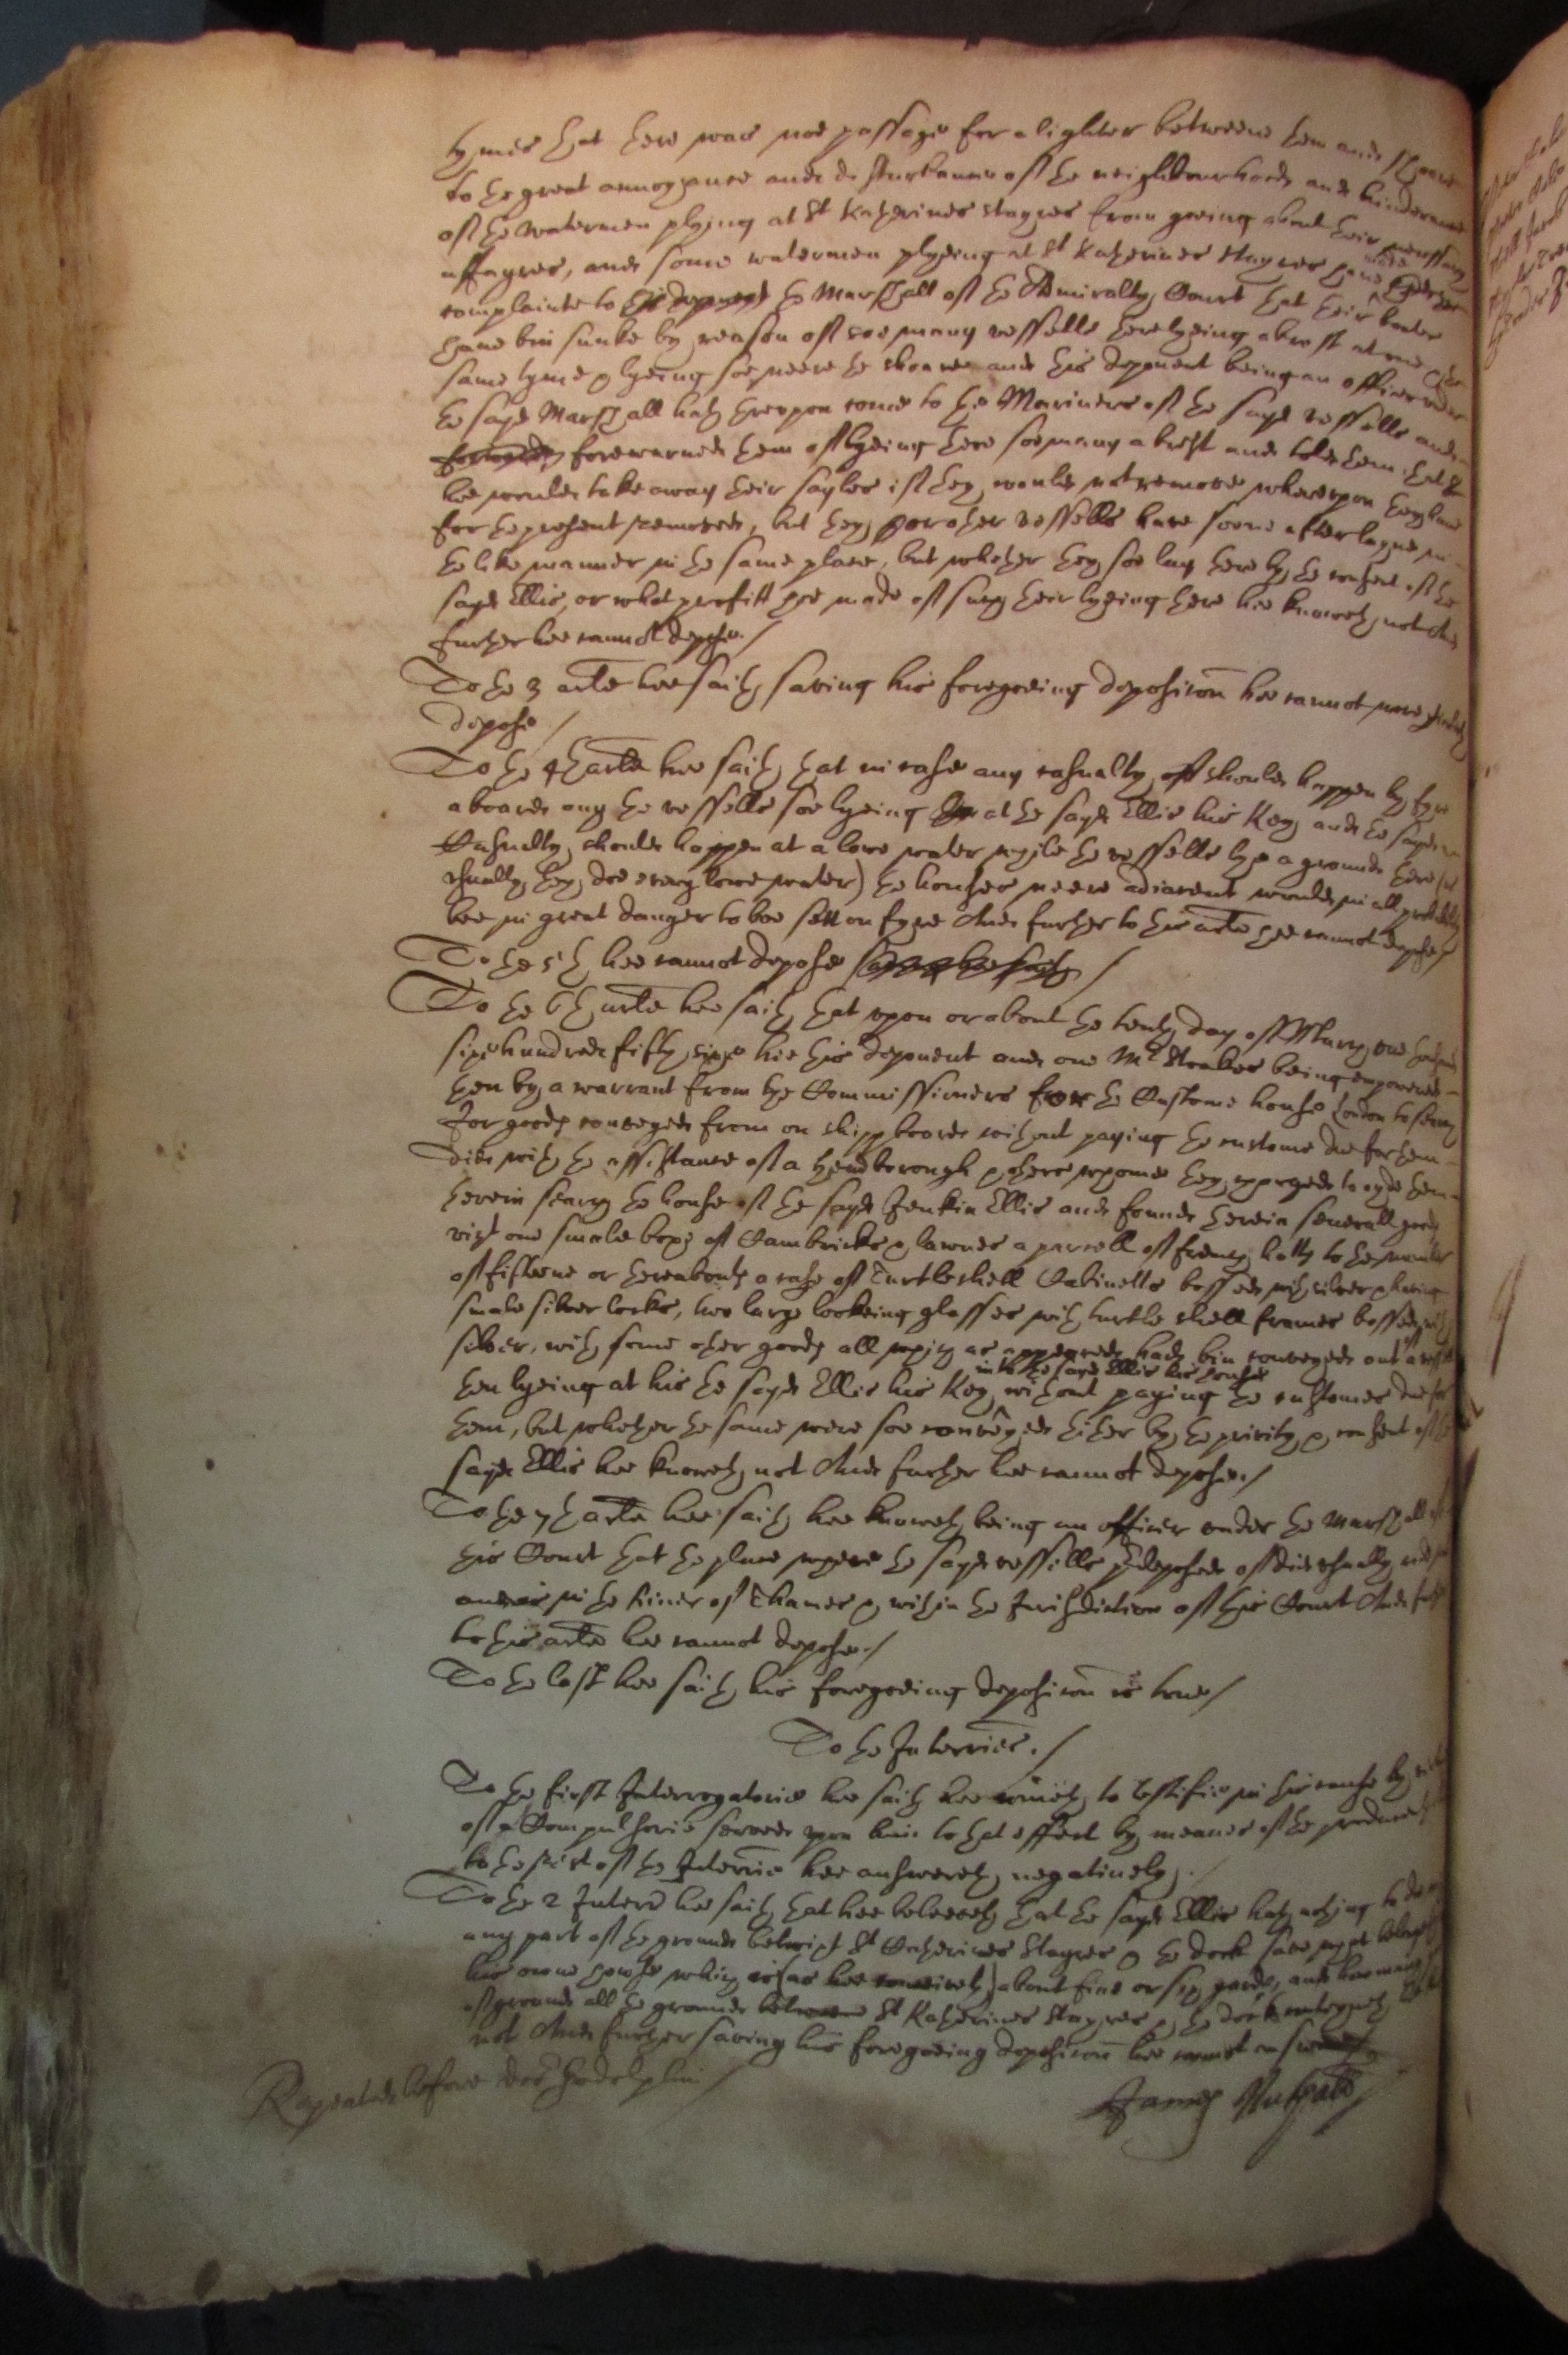 tymes that there was noe passage for a lighter betweene them and the shoare
to the great annoyance and disturbance of the neighbourhood and hinderance
of the watermen plying at St Katherines stayres from goeing about their necessary
affayres, and some watermen plyeing at St Katherines stayres have made
complainte to this deponent the Marshall of the Admiralty Court that their boates
have bin sunke by reason of soe many vessells there lyeing abrest at one &
same tyme & lyeing soe neere the shoare and this deponent being an officer under
the sayd Marshall hath thereupon come to the Mariners of the sayd vessells and
forewarned them of lyeing there soe many abrest and told them that
hee would take away their sayles if they would not remove whereupon they have
for the present removed, but they or other vessells have soone after layne in
the like manner in the same place, but whether they soe lay there by the consent of the
sayd Ellis, or what profitt hee made of such their lyeing there hee knoweth not And
further hee cannot depose./
To the 3 arle hee saith saving his foregoeing deposicon hee cannot more fully
depose./
To the 4th arle hee saith that in case any casualty should happen by fyre
aboard any the vessells soe lyeing at the sayd Ellis his Key and the sayd
Casualty should happen at a lowe water while the vessells lye a ground there (as
usually they doe every lowe water) the houses neere adiacent would in all probability
bee in great danger to bee sett on fyre And further to this arle hee cannot depose/
To the 5th hee cannot depose /
To the 6th arle hee saith that upon or about the tenth day of May one thousand
six hundred fifty six hee this deponent and one Mr Stoakes being empowered
then by a warrant from the Commissioners for the Custome house London to search
for goods conveyed from on shippboard without paying the custome due for them
did with the assistance of a headborough & others whome they charged to ayde them
therein search the house of the sayd Jenkin Ellis and found therein severall goods
vizt one smale boxe of Cambricks & lawnes a parcell of french hatts to the number
of fifteene or thereabouts a case of Turtleshell Cabinetts bossed with silver & having
smale silver locks, two large lookeing glasses with turtle shell frames bossed with
silver, with some other goods all which as appeared had bin conveyed out of a vessell
into the sayd Ellis his house
then lyeing at his the sayd Ellis his Key without paying the customes due for
them, but whether the same were soe conveyed thither by the privity & consent of the
sayd Ellis hee knoweth not And further hee cannot depose./
To the 7th arle hee saith hee knoweth being an officer under the Marshall of
this Court that the place where the sayd vessells predeposed of did usually ride
and is in the River of Thames & within the Jurisdiction of this Court And further
to this arle hee cannot depose./
To the last hee saith his foregoeing deposicon is true/
To the Interries./
To the first Interrogatorie hee saith hee cometh to testifie in this cause by vertue
of a Compulsorie served upon him to that effect by meanes of the producent
to the rest of the Interrie hee answereth negatively./
To the 2 Interr hee saith that hee beleeveth that the sayd Ellis hath nothing to doe
any part of the ground betwixt St Catherines Stayres & the dock save what belongs
his owne house which is (as hee conceiveth) about five or six yards, and how many
of ground all the ground betweene St Katherines Stayres & the dock conteyneth
not And further saving his foregoeing deposicon hee cannot answer
Repeated before doc Godolphin /
James